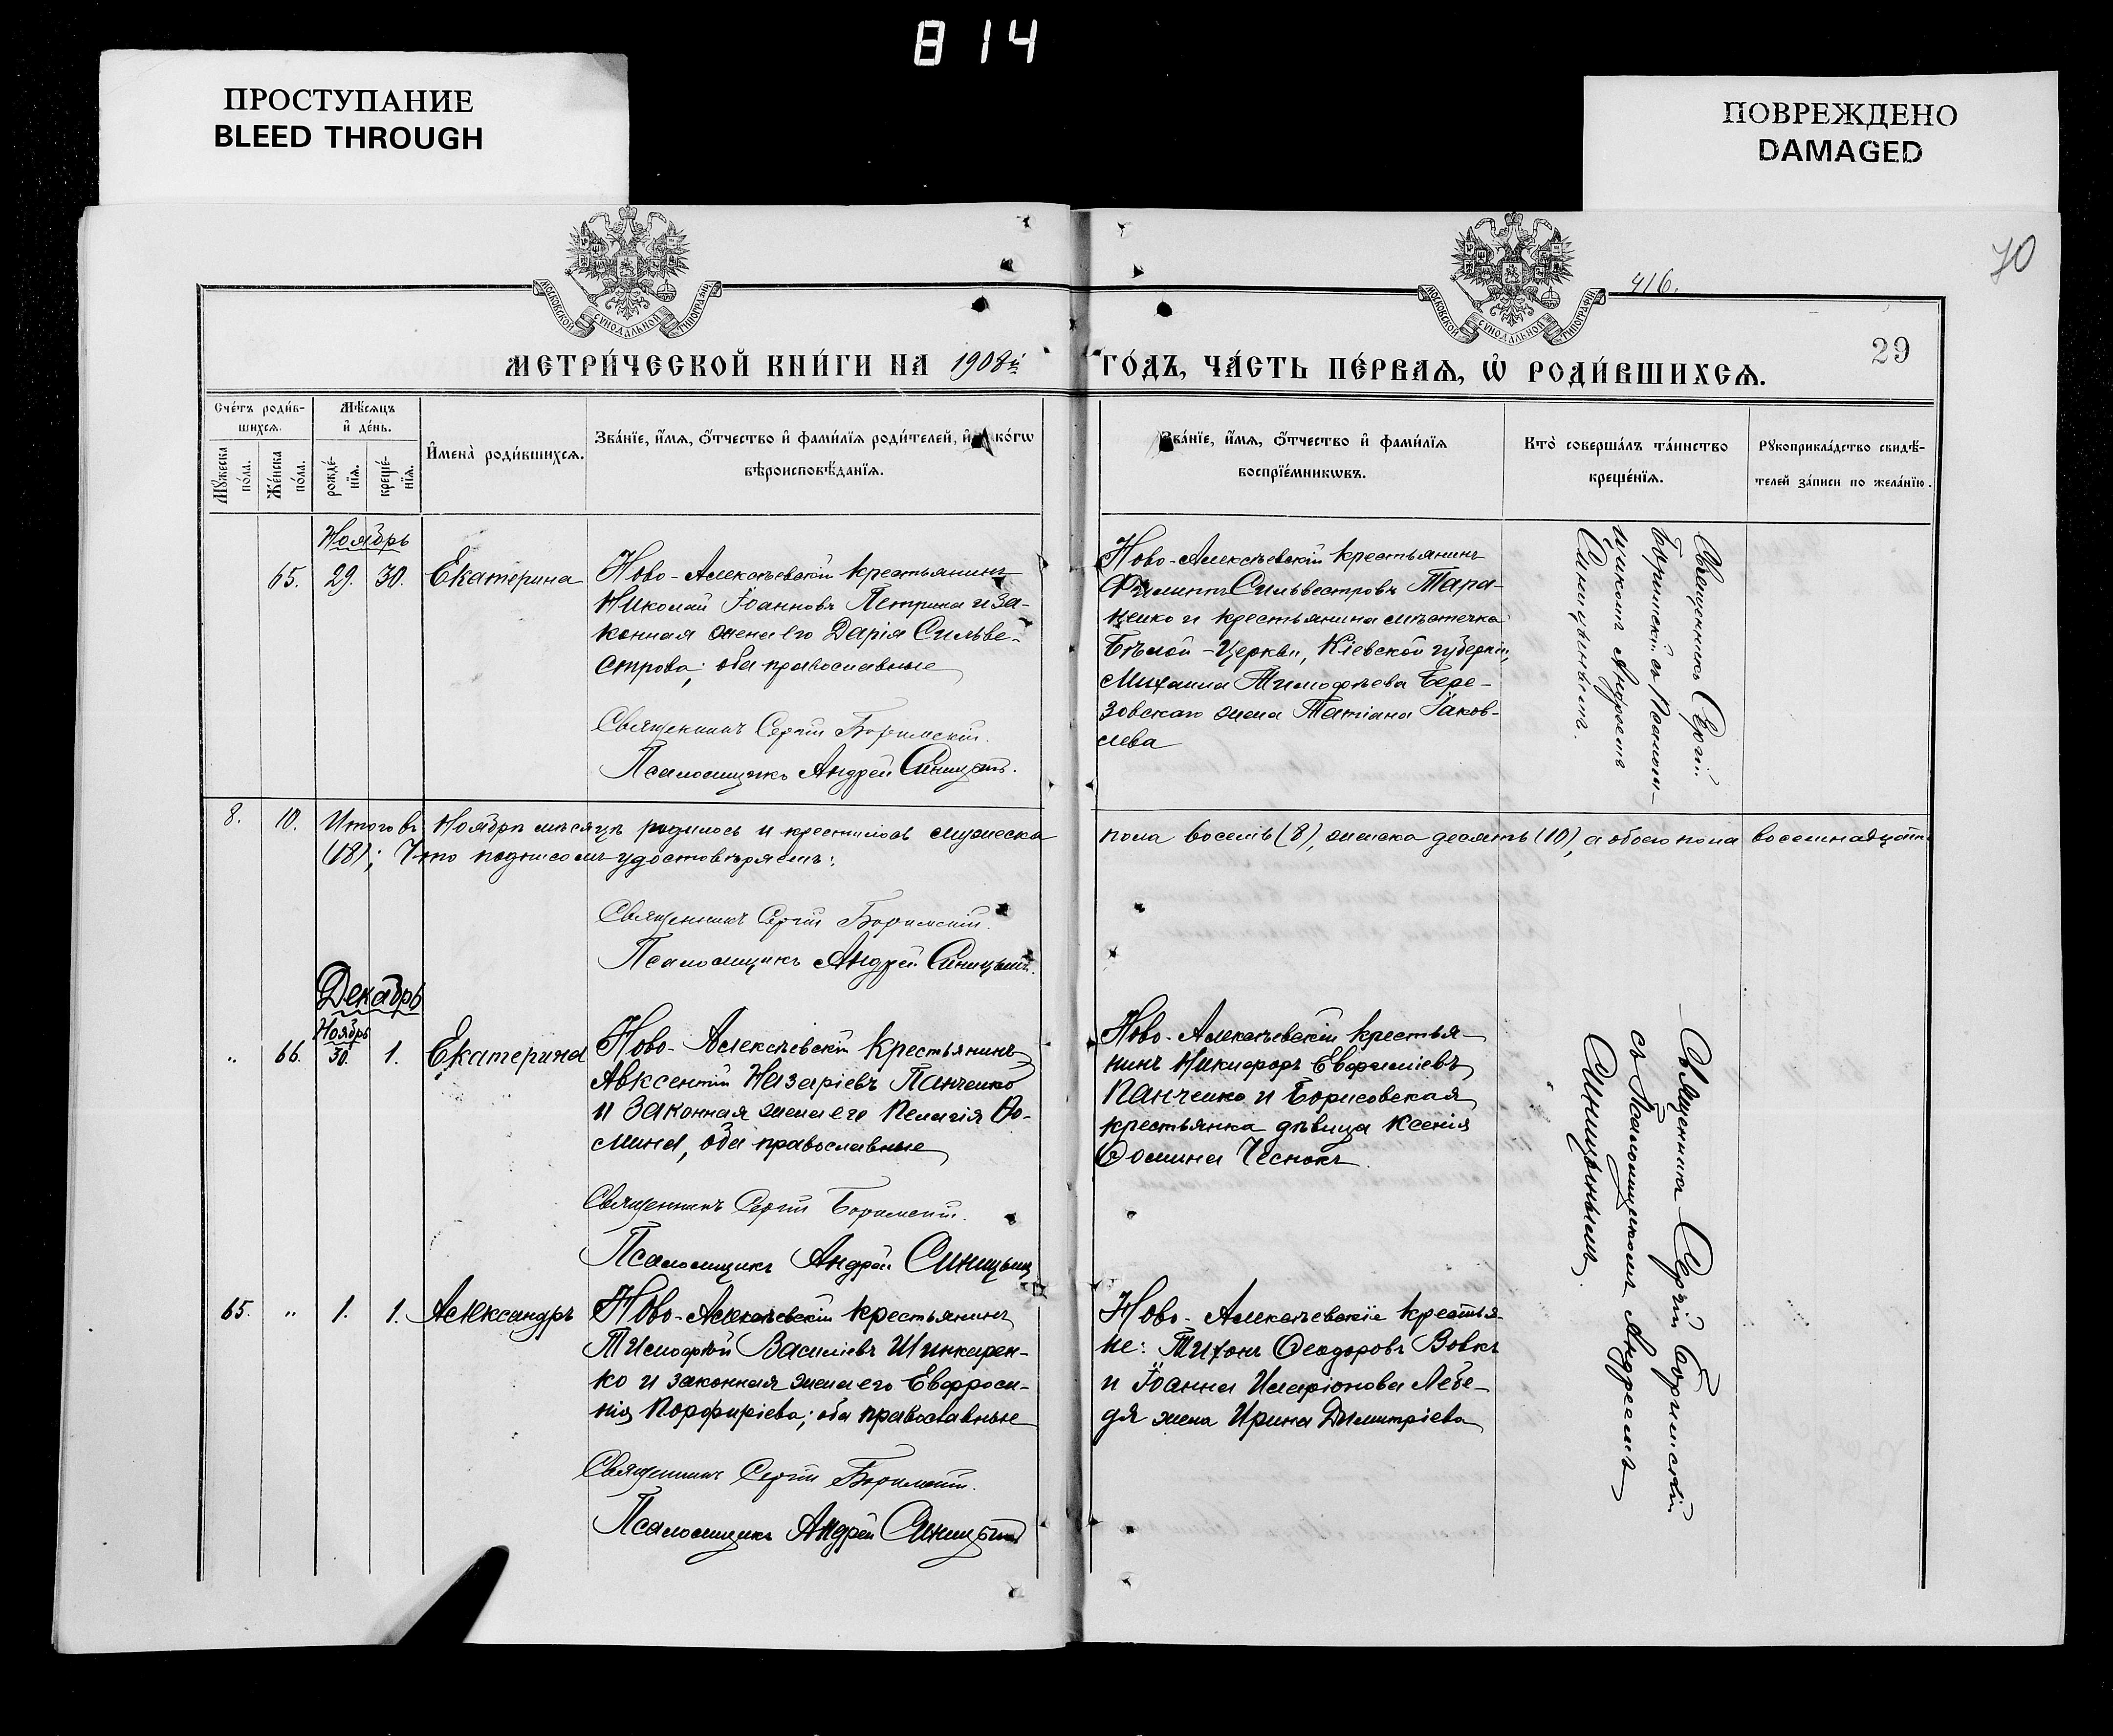 814
ПРОСТУПАНИЕ
BLEED THROUGH
ПОВРЕЖДЕНО
DAMAGED
70
416.
29
МОСКОВСКОЙ СѴНОДАЛЬНОЙ ТИПОГРАФІИ
МОСКОВСКОЙ СѴНОДАЛЬНОЙ ТИПОГРАФІИ
МЕТРИ́ЧЕСКОЙ КНИ́ГИ НА 1908й
ГО́ДЪ, ЧА́СТЬ ПЕ́РВАѦ, Ѡ҆ РОДИ́ВШИХСѦ.
Сче́тъ роди́в-
шихсѧ.
Мѹ́жеска по́ла.
Же́нска по́ла.
Мѣ́сѧцъ
и҆ де́нь.
рожде́-
нїѧ.
креще́-
нїѧ.
И҆мена̀ роди́вшихсѧ.
Зва́нїе, и҆́мѧ, ѻ҆́тчество и҆ фами́лїѧ роди́телей, и҆ ко́гѡ
вѣроисповѣ́данїѧ.
Зва́нїе, и҆́мѧ, ѻ҆́тчество и҆ фами́лїѧ
воспрїе́мникѡвъ.
Кто̀ соверша́лъ та́инство
креще́нїѧ.
Рѹкоприкла́дство свидѣ́-
телей за́писи по жела́нїю.
Ноябрь
65. 29. 30. Екатерина
Ново-Алексѣевскій крестьянинъ
Николай Іоанновъ Петрина и за-
конная жена его Дарія Сильве-
строва; оба православные
Священникъ Сергій Боримскій.
Псаломщикъ Андрей Синицынъ.
Ново-Алексѣевскій крестьянинъ
Филиппъ Сильвестровъ Тара-
ненко и крестьянина мѣстечка
Бѣлой-Церкви, Кіевской губерніи,
Михаила Тимофѣева Бере-
зовскаго жена Татіана Іаков-
лева
Священникъ Сергій
Боримскій съ Псалом-
щикомъ Андреемъ
Синицынымъ.
8. 10. Итого въ Ноябрѣ мѣсяцѣ родилось и крестилось мужеска
пола восемь (8), женска десять (10), а обоего пола восемнадцать
(18); Что подписомъ удостовѣряемъ:
Священникъ Сергій Боримскій.
Псаломщикъ Андрей Синицынъ.
Декабрь
Ноябрь
„ 66. 30. 1. Екатерина
Ново-Алексѣевскій крестьянинъ
Авксентій Назаріевъ Панченко
и законная жена его Пелагія Ѳо-
мина, оба православные
Священникъ Сергій Боримскій.
Псаломщикъ Андрей Синицынъ
Ново-Алексѣевскій крестья-
нинъ Никифоръ Евфиміевъ
Панченко и Борисовская
крестьянка дѣвица Ксенія
Ѳомина Чеснокъ.
Священникъ Сергій Боримскій
съ Псаломщикомъ Андреемъ
Синицынымъ.
65. „ 1. 1. Александръ
Ново-Алексѣевскій крестьянинъ
Тимофей Василіевъ Шинкарен-
ко и законная жена его Евфроси-
нія Порфиріева; оба православные
Священникъ Сергій Боримскій.
Псаломщикъ Андрей Синицынъ
Ново-Алексѣевскіе крестья-
не: Тихонъ Ѳеодоровъ Вовкъ
и Іоанна Иларіонова Лебе-
дя жена Ирина Димитріева